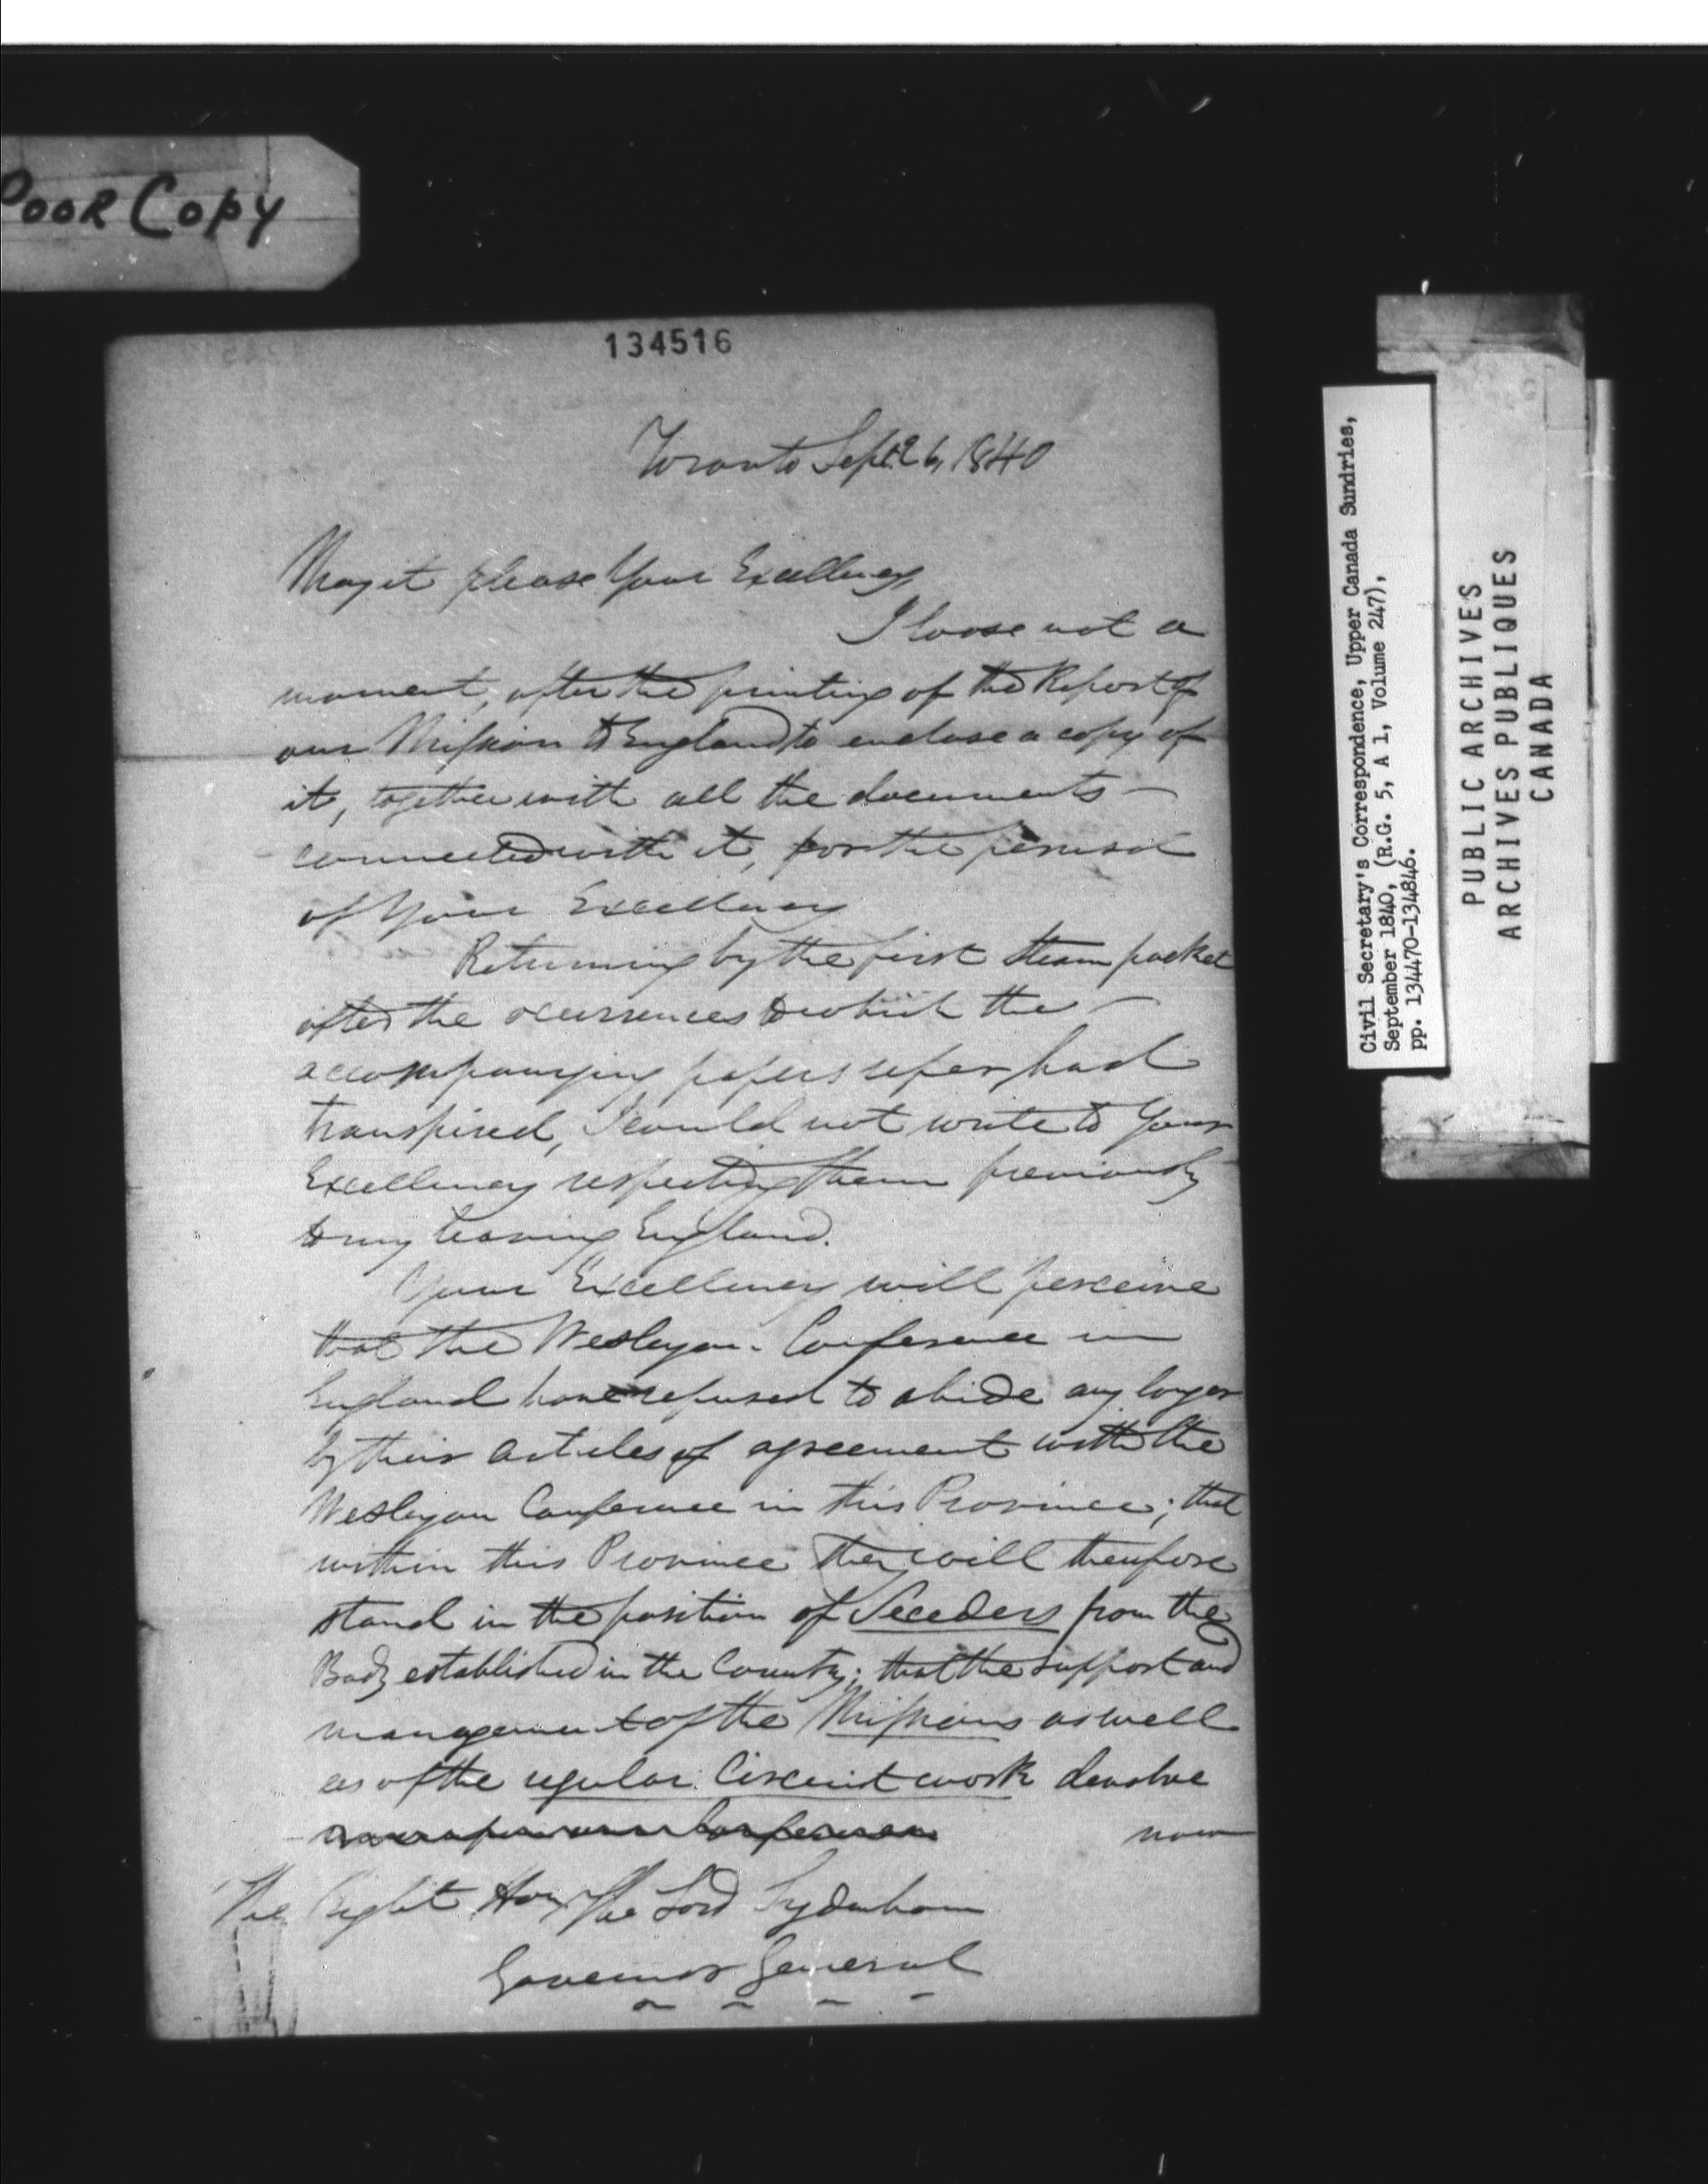 Poor Copy
134516
Toronto Sept. 26, 1840
May it please Your Excellency
I loose not a
moment, after the printing of the Report of
our Mission to England to enclose a copy of
it, together with all the documents —
connected with it, for the perusal
of Your Excellency
Returning by the first steam packet
after the occurrences to which the —
accompanying papers refer had
transpired, I could not write to Your
Excellency respecting them previously
to my leaving England.
Your Excellency will perceive
that the Wesleyan Conference in
England have refused to abide any longer
by their articles of agreement with the
Wesleyan Conference in this Province; that
within this Province they will therefore
stand in the position of Seceders from the
Body established in the Country; that the support and
management of the Missions as well
as of the regular Circuit work devolve
upon our Conference now
The Right Hon. The Lord Sydenham
Governor General
Civil Secretary's Correspondence, Upper Canada Sundries,
September 1840, (R.G. 5, A 1, Volume 247),
pp. 134470-134846.
PUBLIC ARCHIVES
ARCHIVES PUBLIQUES
CANADA